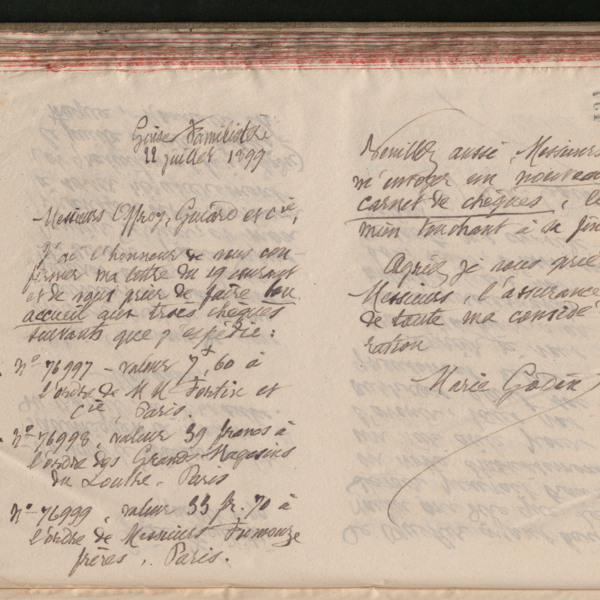 Guise Familistère
22 juillet 1899
Messieurs Offroy, Guiard et Cie,
J'ai l'honneur de vous con-
firmer ma lettre du 19 courant
et de vous prier de faire bon
accueil aux trois chèques
suivants que j'expédie :
No 76997 - valeur 7f,60 à
l'ordre de M M Fortin et
Cie, Paris.
No 76998, valeur 39 francs à
l'ordre des Grands Magasins
du Louvre, Paris
No 76999, valeur 33 fr. 70 à
l'ordre de Messieurs Fumouze
frères, Paris.
Veuillez aussi, Messieurs
m'envoyer un nouveau
carnet de chèques, le
mien touchant à sa fin
Agréez je vous prie
Messieurs, l'assurance
de toute ma considé
ration
Marie Godin